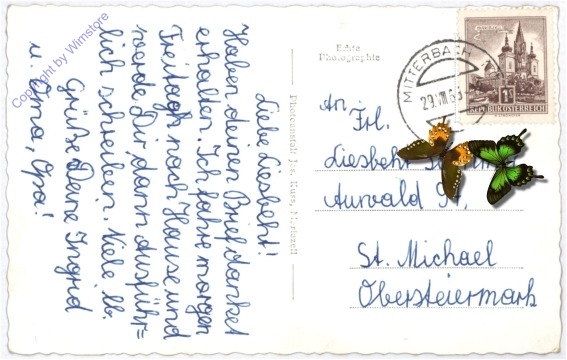 Liebe Liesbeht!
Haben deinen Brief dankend
erhalten. Ich fahre morgen
Freitag nach Hause und
werde Dir dann ausführ=
lich schreiben. Viele lb.
Grüße Deine Ingrid
u. Oma, Opa!
Echte
Photographie
MITTERBACH
29.VIII.63
1S
REPUBLIK ÖSTERREICH
An
Frl.
Liesbeht
Aurvald 94,
St. Michael
Obersteiermark
Photoanstalt Jos. Kuss, Mariazell
Copyright by Wimstore